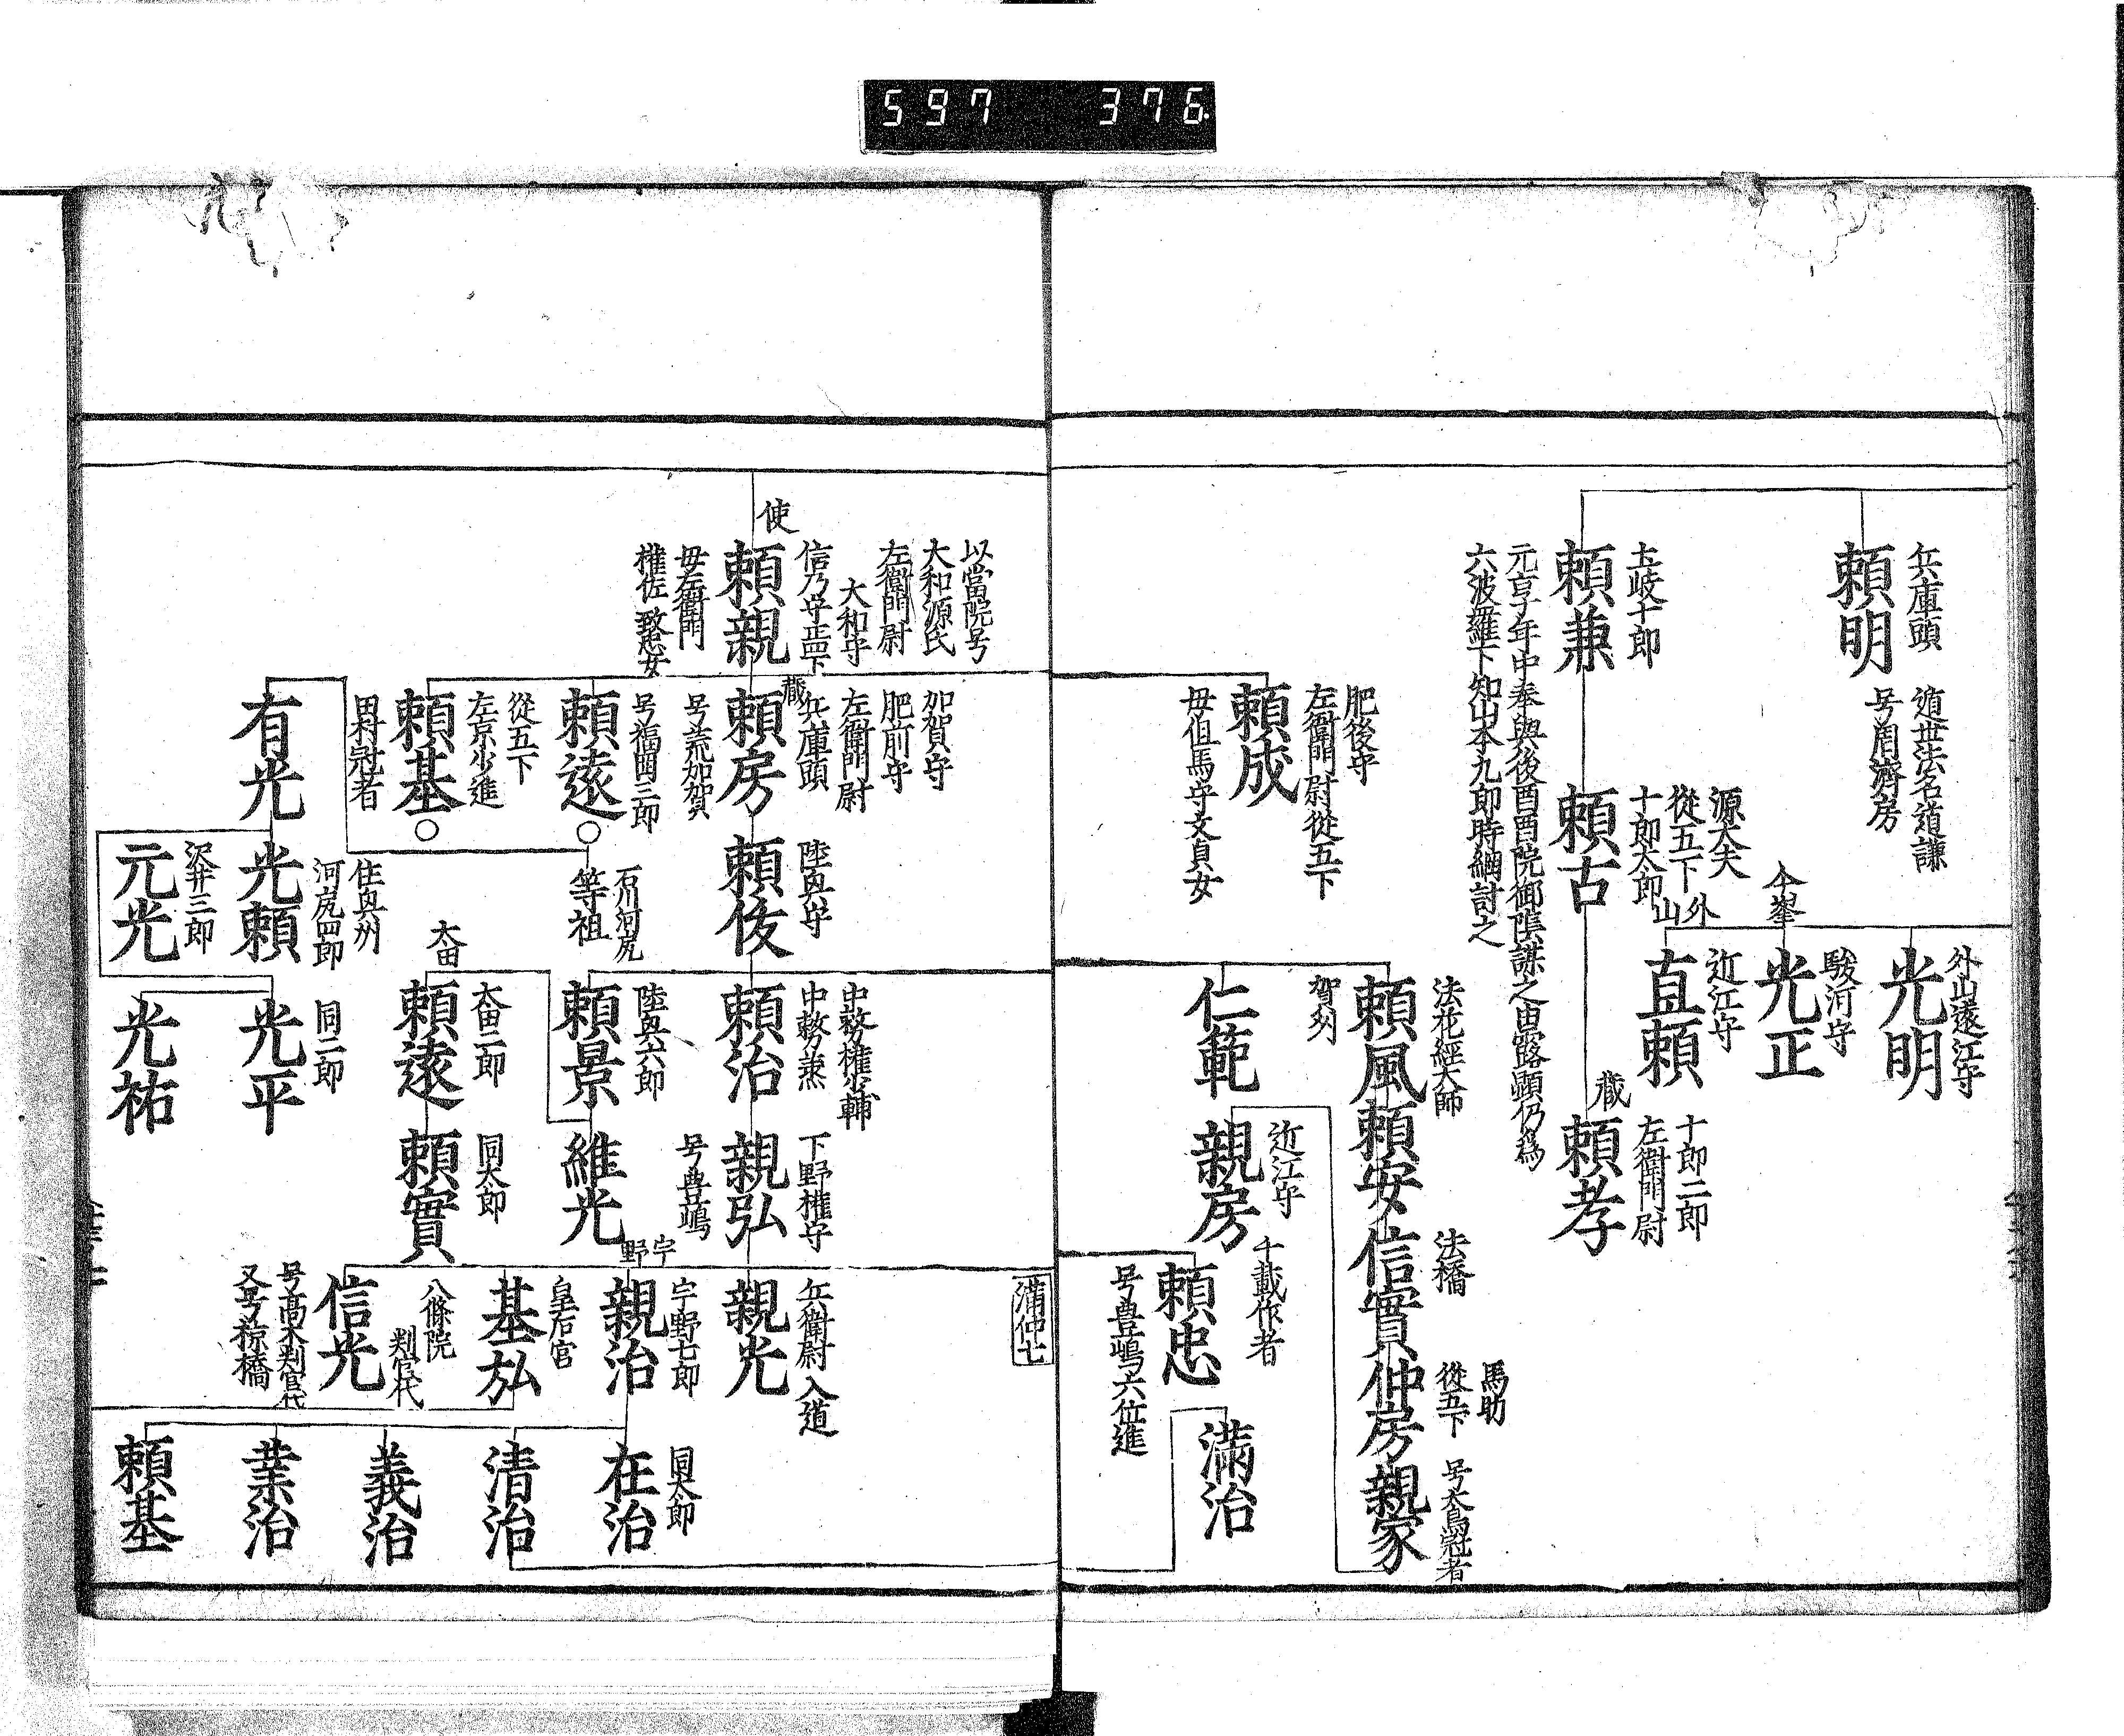 597 376
兵庫頭
頼明
遁世法名道謙
号周濟房
土岐十郎
頼兼
元亨子年中奉與後
院御隂謀之由露顕仍爲
六波羅下知山本九郎時綱討之
源大夫
従五下
十郎太郎
頼古
外山
今峯
外山遠江守
光明
駿河守
光正
近江守
直頼
十郎二郎
左衛門尉
蔵
頼孝
肥後守
左衛門尉従五下
頼成
母但馬守文貞女
法花經大師
頼風
賀州
頼安
法橋
信實
馬助
従五下
仲房
号大鳥冠者
親家
仁範
近江守
親房
千載作者
頼忠
号豊嶋
六位進
満治
満仲七
以當院号
大和源氏
左衛門尉
大和守
信乃守正四下
使
頼親
母左衛門
権佐致忠女
加賀守
肥前守
左衛門尉
兵庫頭
蔵
頼房
号荒加賀
号福田三郎
頼遠
従五下
左京少進
頼基
田村冠者
有光
陸奥守
頼俊
石川河尻
等祖
住奥州
河尻四郎
光頼
沢井三郎
元光
中務権少輔
中務丞
頼治
陸奥六郎
頼景
太田
太田二郎
頼遠
同二郎
光平
光祐
下野権守
親弘
号豊嶋
維光
同太郎
頼實
兵衛尉入道
親光
宇野
宇野七郎
親治
皇后宮
基弘
八條院
判官代
信光
号高木判官代
又号椋橋
同太郎
在治
清治
義治
業治
頼基